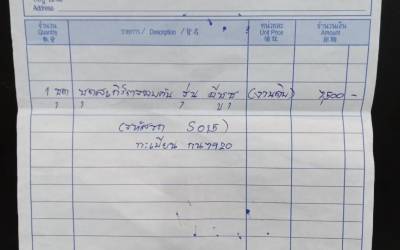 Address
จำนวน
Quantity
數量
รายการ / Description / 貨名
หน่วยละ
Unit Price
單位
จำนวนเงิน
Amount
銀碼
1 ชุด ชุดสเกิร์ตรอบคัน รุ่น (งานดิบ) 7,500 -
(รหัสรถ S015)
ทะเบียน กน7920